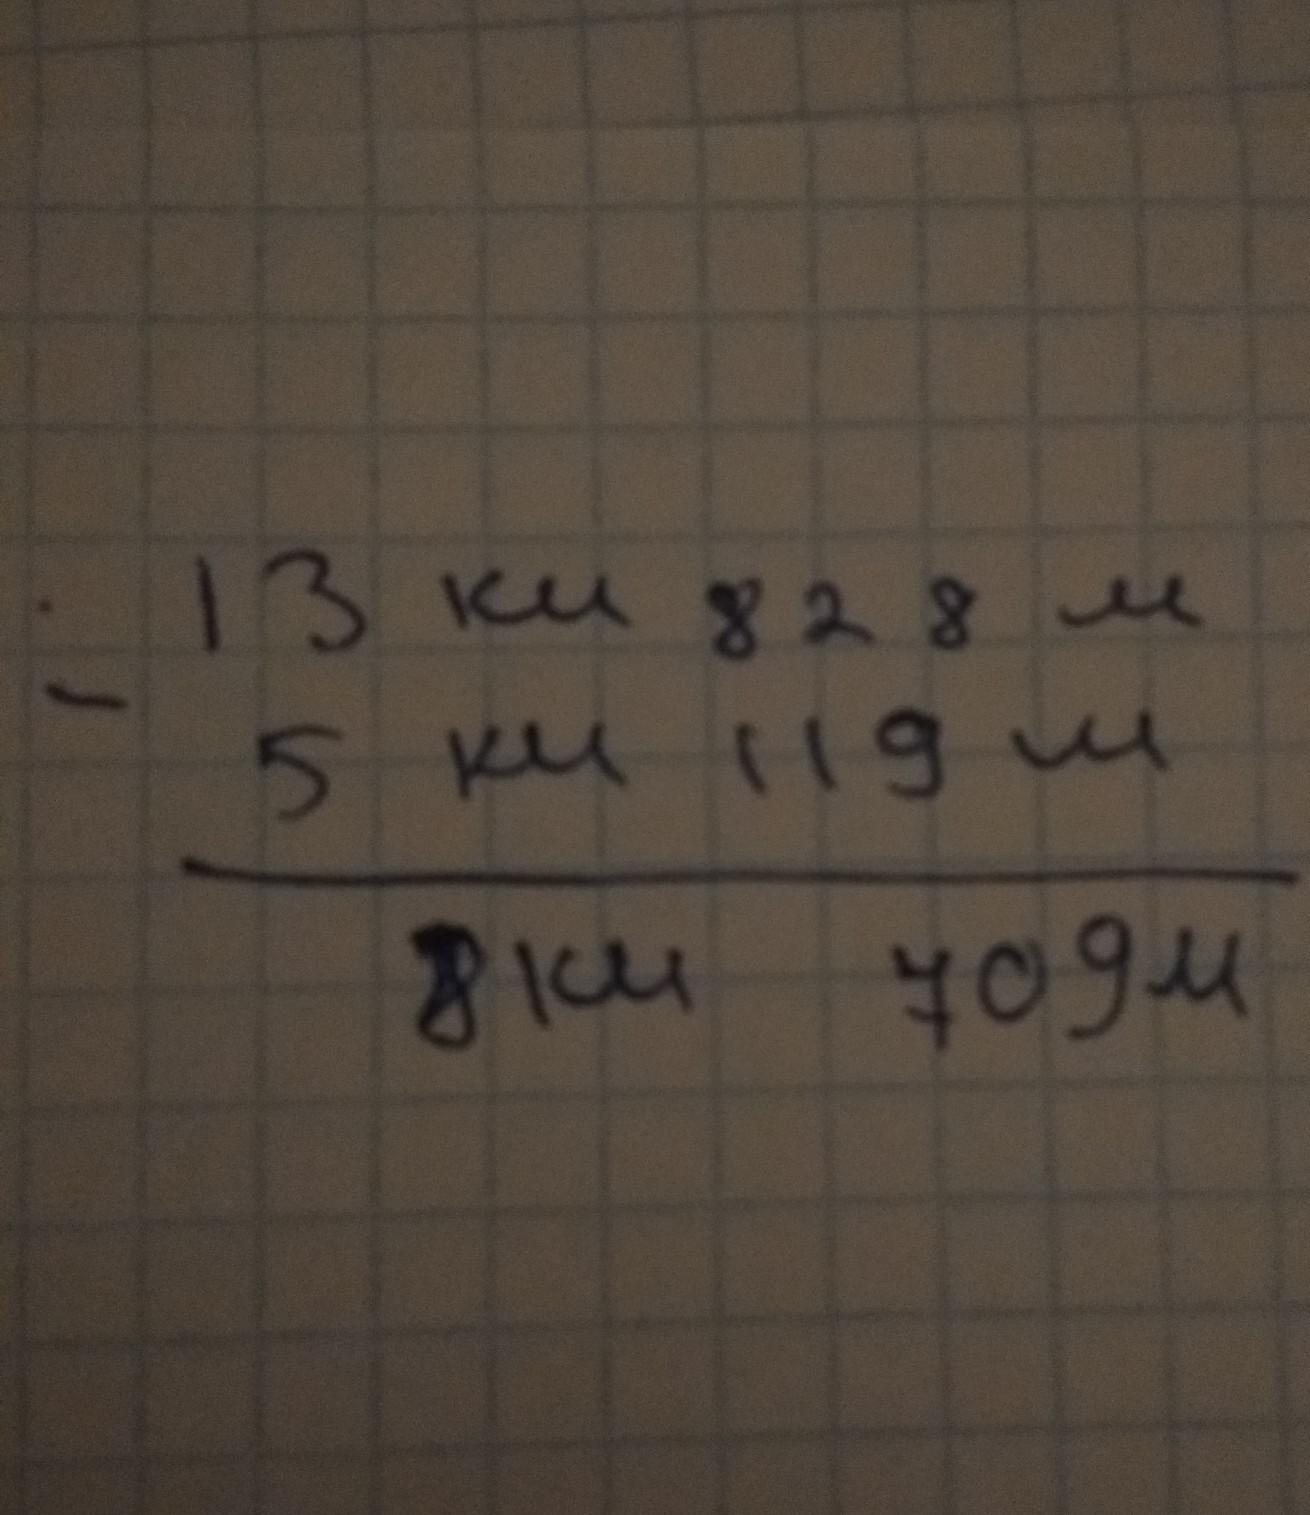 13 км 828 м
-
5 км 119 м
8 км 709 м